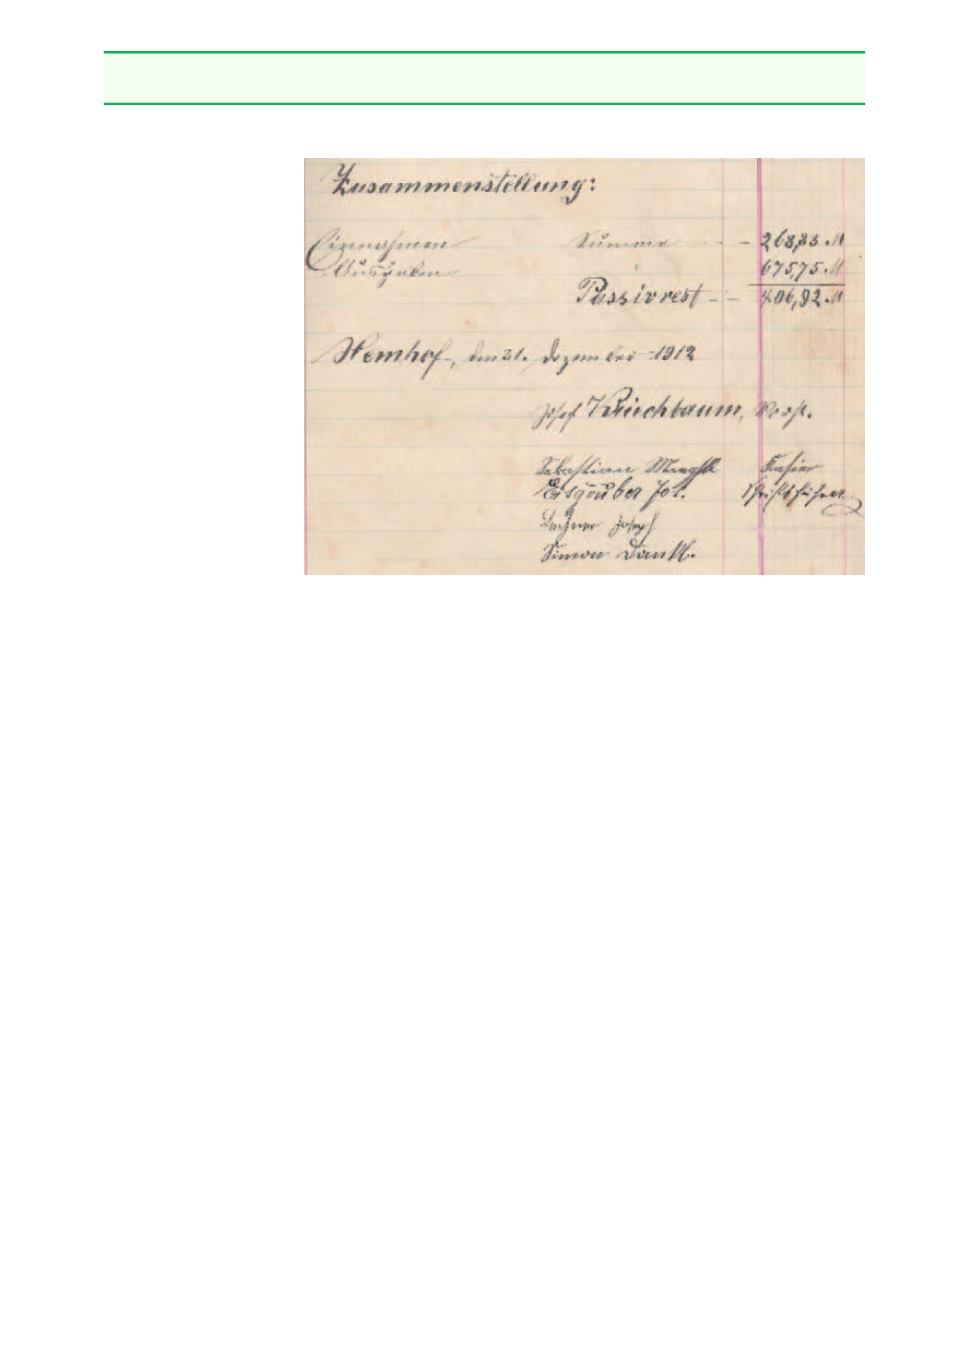 Zusammenstellung:
Einnahmen Summa - - 268,83 M
Ausgaben " 675,75 M
Passivrest - - 406,92 M
Hemhof, den 31. Dezember 1912
Josef Kirschbaum, Vorst.
Sebastian Kassier
Jos. Schriftführer
Lechner Joseph
Simon Dankl.